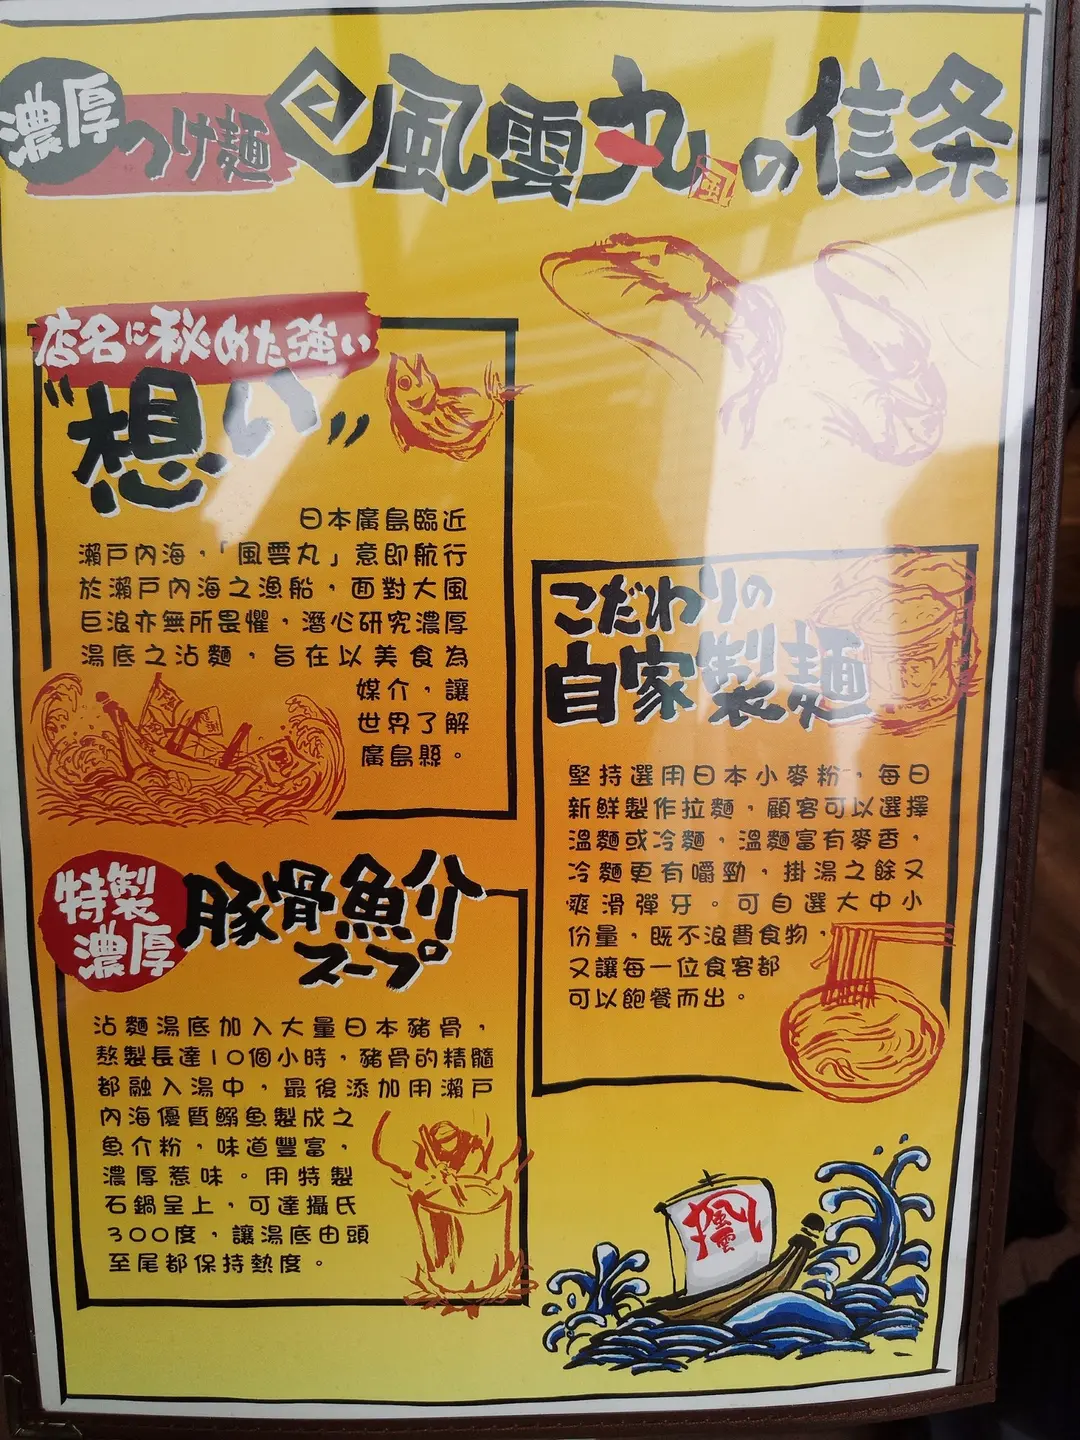 濃厚つけ麺 風雲丸の信条
風
店名に秘めた強い
"想い"
日本廣島臨近
瀨戸內海，「風雲丸」意即航行
於瀨戸內海之漁船，面對大風
巨浪亦無所畏懼，潛心研究濃厚
湯底之沾麵，旨在以美食為
媒介，讓
世界了解
廣島縣。
こだわりの
自家製麺
堅持選用日本小麥粉，每日
新鮮製作拉麵，顧客可以選擇
溫麵或冷麵，溫麵富有麥香，
冷麵更有嚼勁，掛湯之餘又
爽滑彈牙。可自選大中小
份量，既不浪費食物，
又讓每一位食客都
可以飽餐而出。
特製
濃厚
豚骨魚介
スープ
沾麵湯底加入大量日本豬骨，
熬製長達10個小時，豬骨的精髓
都融入湯中，最後添加用瀨戸
內海優質鰯魚製成之
魚介粉，味道豐富，
濃厚惹味。用特製
石鍋呈上，可達攝氏
300度，讓湯底由頭
至尾都保持熱度。